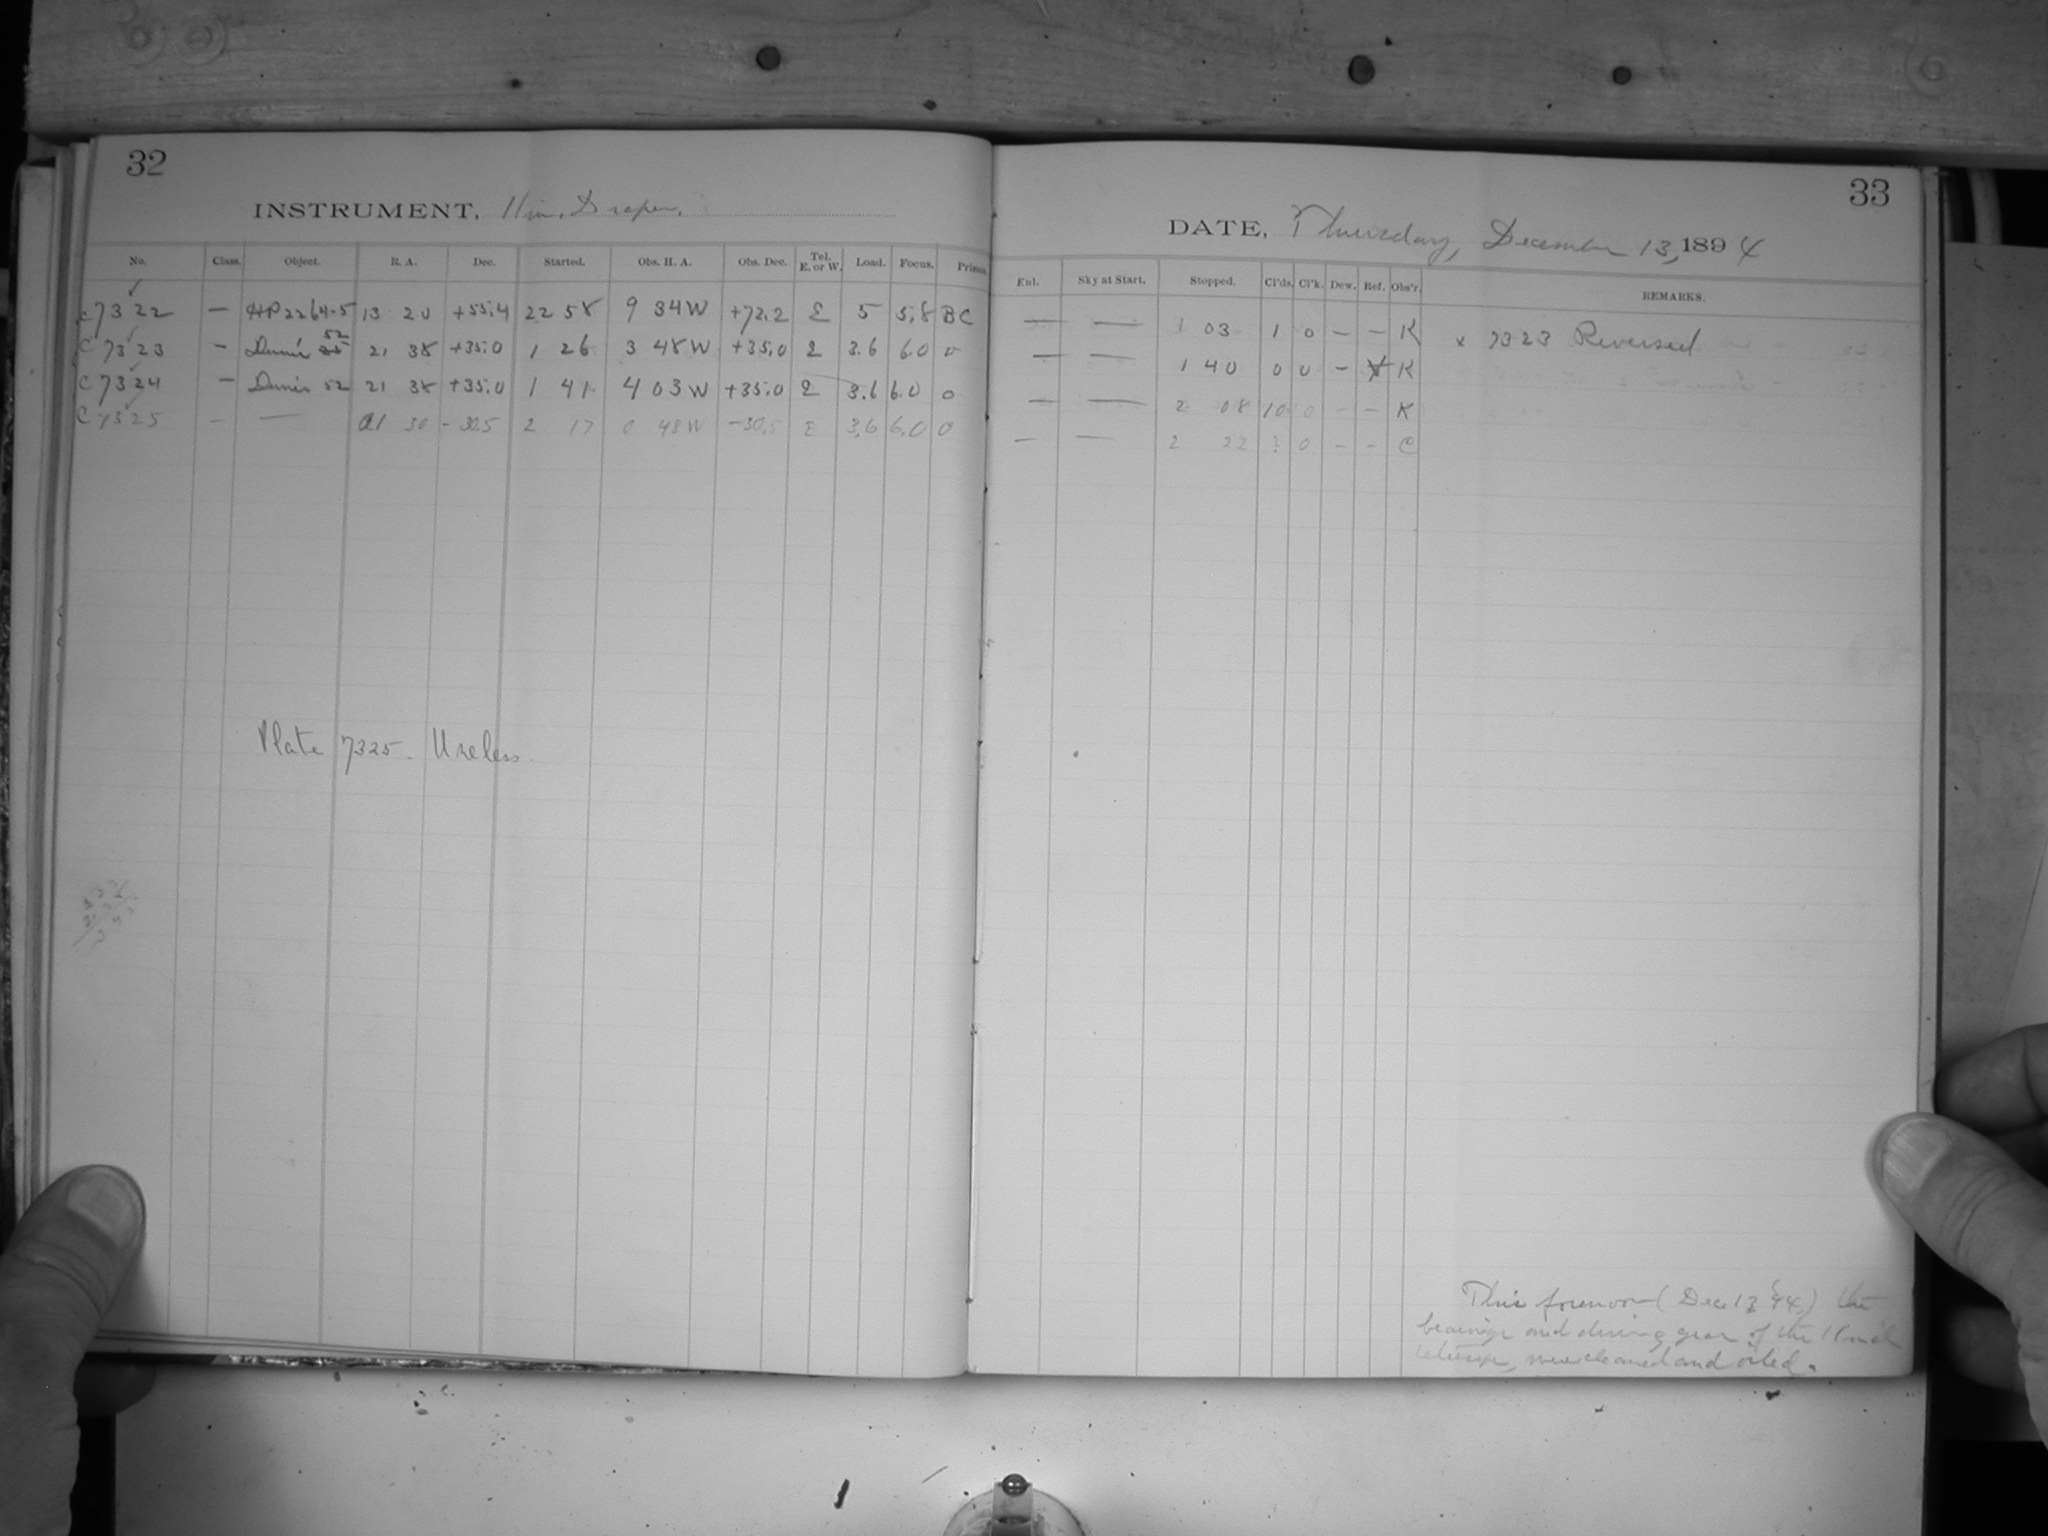 32
INSTRUMENT, 11 in. Draper.
No. Class. Object. R. A. Dec. Started. Obs. H. A. Obs. Dec. Tel. E. or W. Load. Focus. Prisms.
C 7322 — HP 2264-5 13 20 +55.4 22 58 9 34 W +72.2 E 5 5.8 BC
C 7323 — Dunér 52 21 38 +35.0 1 26 3 48 W +35.0 E 3.6 6.0 0
C 7324 — Dunér 52 21 38 +35.0 1 41 4 03 W +35.0 E 3.6 6.0 0
C 7325 — — 01 30 -30.5 2 17 0 48 W -30.5 E 3.6 6.0 0
Plate 7325. Useless.
33
DATE, Thursday, December 13, 1894
Enl. Sky at Start. Stopped. Cl'ds. Cl'k. Dew. Ref. Obs'r. REMARKS.
— — 1 03 1 0 — — K x 7323 Reversed
— — 1 40 0 0 — K
— — 2 08 10 0 — — K
— — 2 22 ? 0 — — C
This forenoon (Dec 13 '94) the
bearings and driving gear of the 11 inch
telescope, were cleaned and oiled.